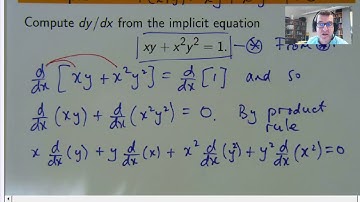 Compute dy/dx from the implicit equation
xy + x²y² = 1. —⊛ From ⊛,
d/dx [xy + x²y²] = d/dx [1] and so
d/dx (xy) + d/dx (x²y²) = 0. By product
rule
x d/dx (y) + y d/dx (x) + x² d/dx (y²) + y² d/dx (x²) = 0